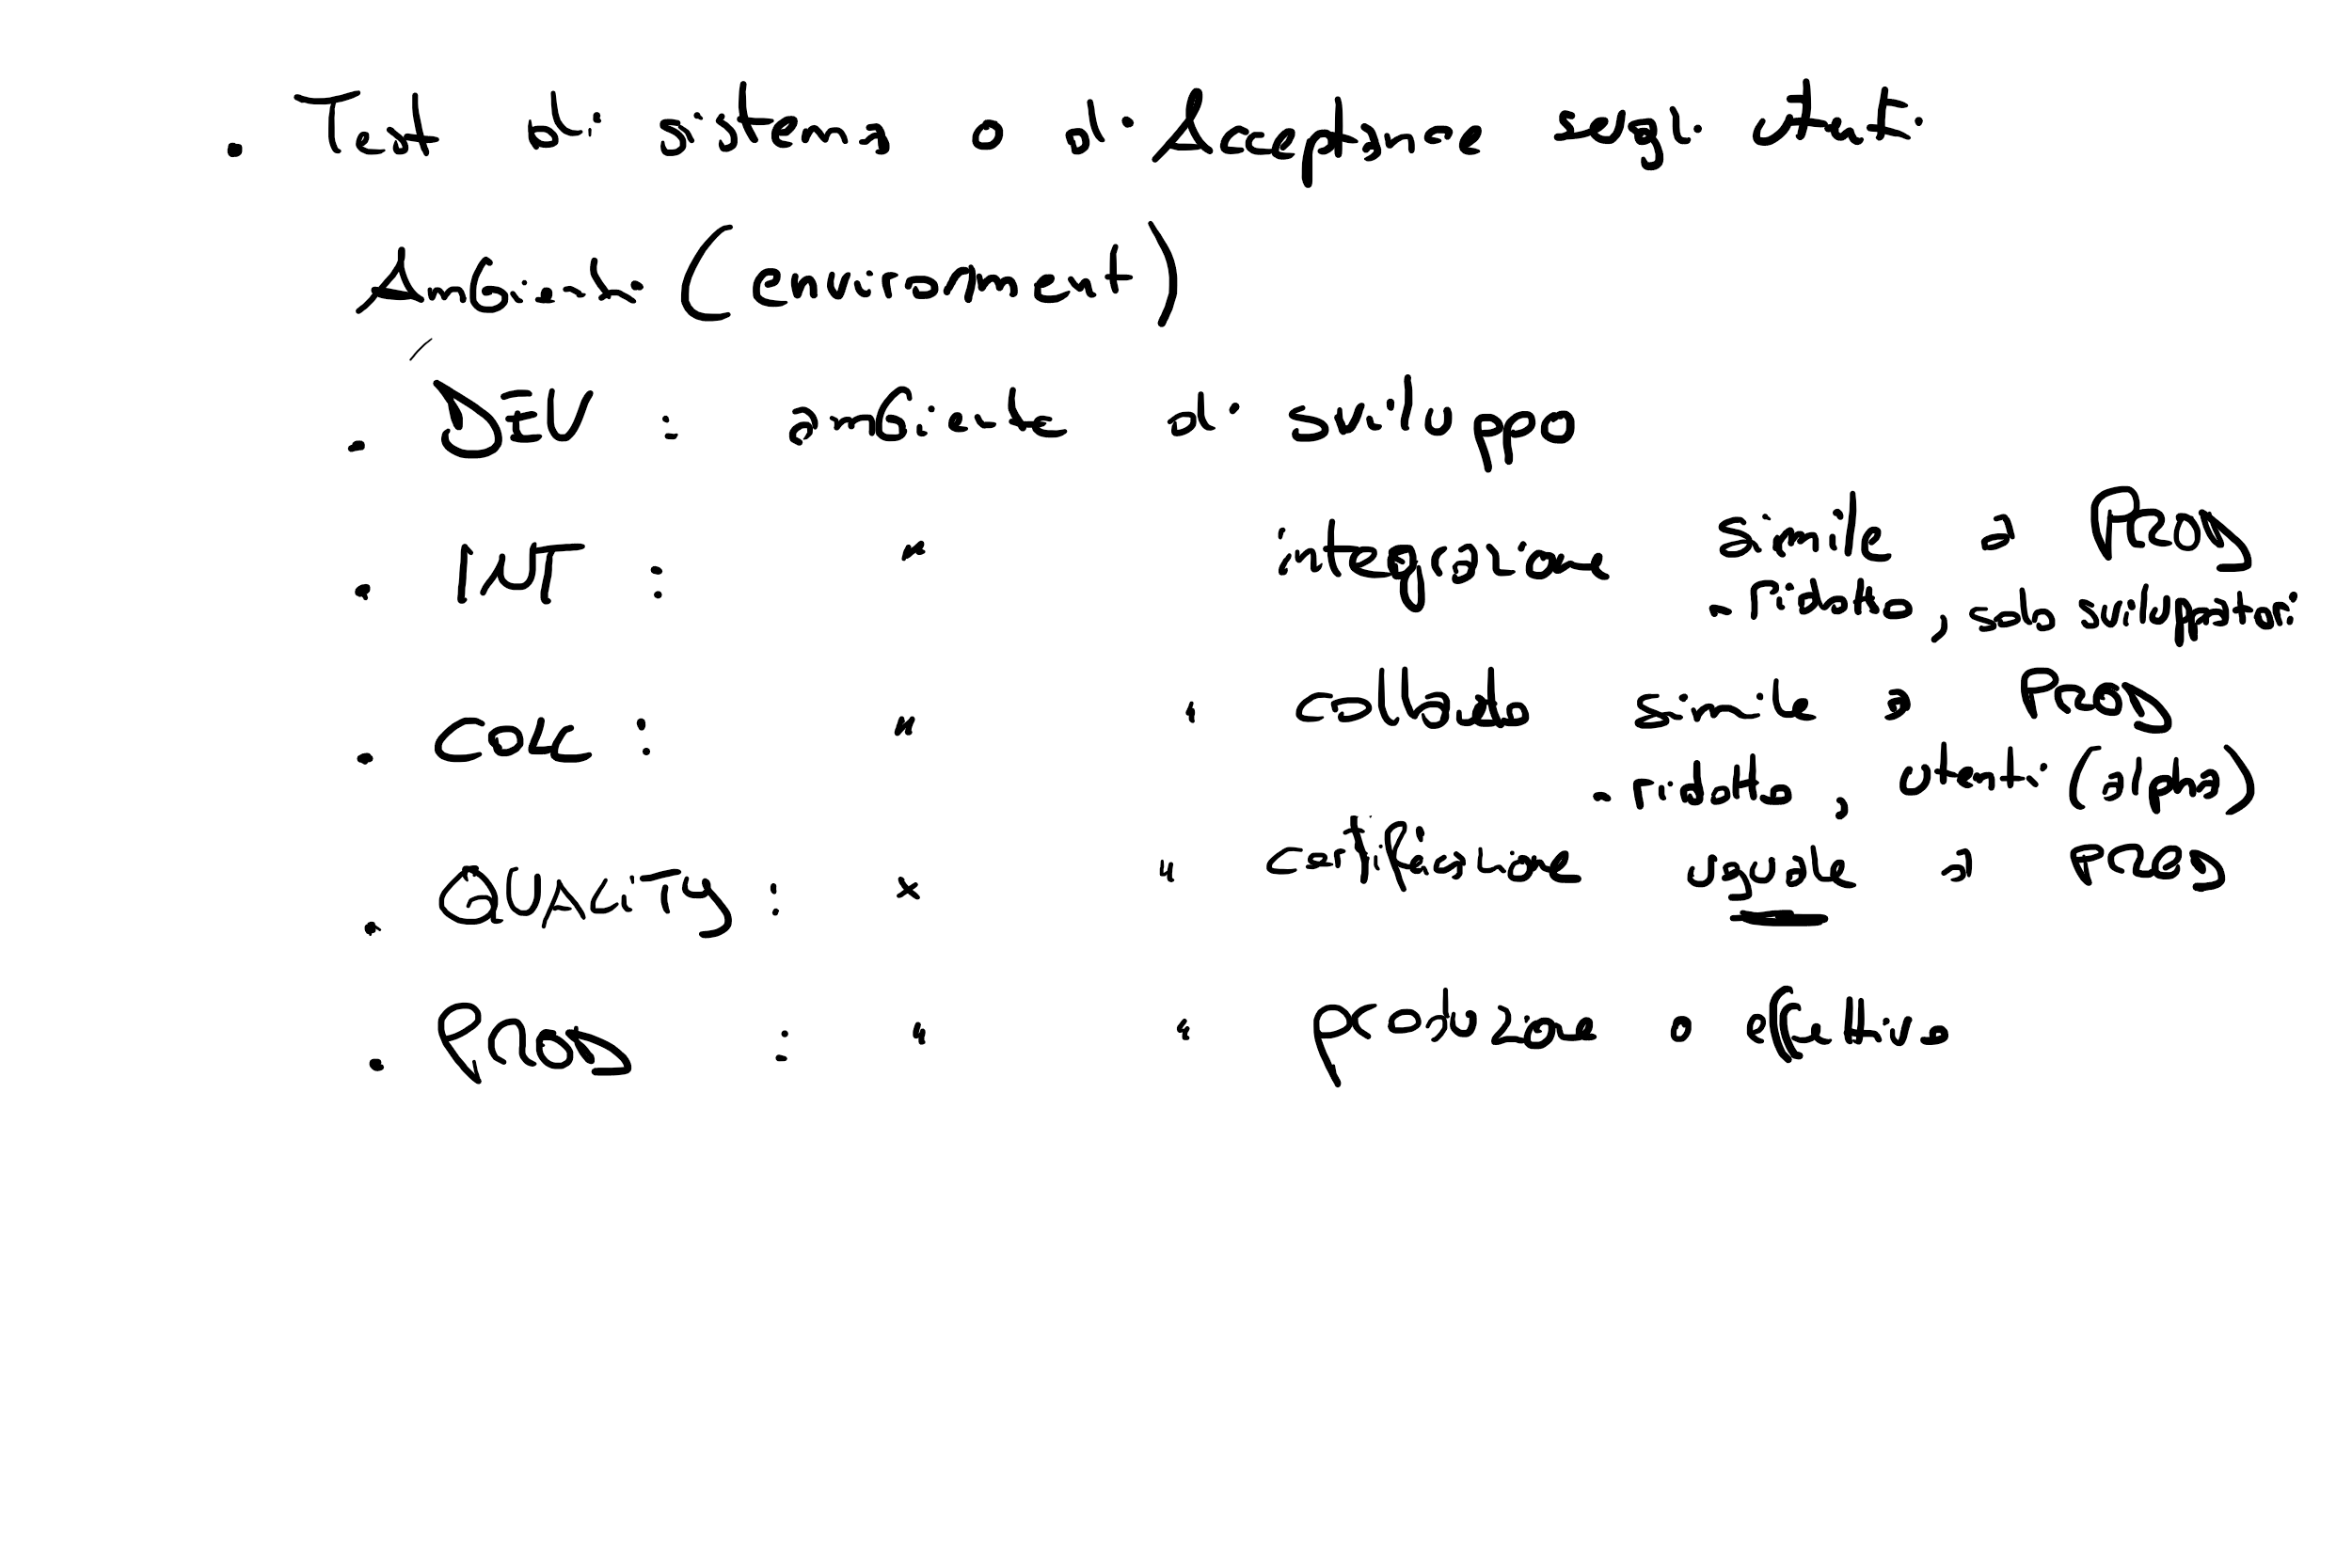 . Test di sistema o di Acceptance sugli utenti
Ambienti (environment)
. DEV : ambiente di sviluppo
. INT : " integrazione simile a PROD
- ridotto, solo sviluppatori
. COLL : " " collaudo simile a PROD
- ridotto, utenti (alpha)
. QUALITY : " " certificazione uguale a PROD
. PROD : " " produzione o effettivo